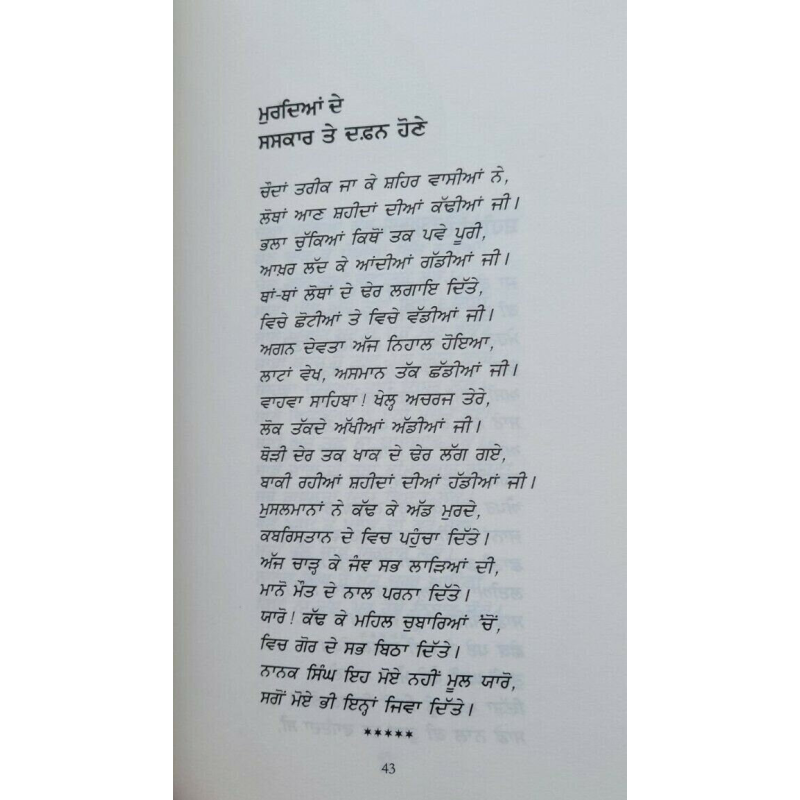 ਮੁਰਦਿਆਂ ਦੇ
ਸਸਕਾਰ ਤੇ ਦਫ਼ਨ ਹੋਣੇ
ਚੌਦਾਂ ਤਰੀਕ ਜਾ ਕੇ ਸ਼ਹਿਰ ਵਾਸੀਆਂ ਨੇ,
ਲੋਥਾਂ ਆਣ ਸ਼ਹੀਦਾਂ ਦੀਆਂ ਕੱਢੀਆਂ ਜੀ।
ਭਲਾ ਚੁੱਕਿਆਂ ਕਿਥੋਂ ਤਕ ਪਵੇ ਪੂਰੀ,
ਆਖ਼ਰ ਲੱਦ ਕੇ ਆਂਦੀਆਂ ਗੱਡੀਆਂ ਜੀ।
ਥਾਂ-ਥਾਂ ਲੋਥਾਂ ਦੇ ਢੇਰ ਲਗਾਇ ਦਿੱਤੇ,
ਵਿਚੇ ਛੋਟੀਆਂ ਤੇ ਵਿਚੇ ਵੱਡੀਆਂ ਜੀ।
ਅਗਨ ਦੇਵਤਾ ਅੱਜ ਨਿਹਾਲ ਹੋਇਆ,
ਲਾਟਾਂ ਵੇਖ, ਅਸਮਾਨ ਤੱਕ ਛੱਡੀਆਂ ਜੀ।
ਵਾਹਵਾ ਸਾਹਿਬਾ! ਖੇਲ੍ਹ ਅਚਰਜ ਤੇਰੇ,
ਲੋਕ ਤੱਕਦੇ ਅੱਖੀਆਂ ਅੱਡੀਆਂ ਜੀ।
ਥੋੜੀ ਦੇਰ ਤਕ ਖਾਕ ਦੇ ਢੇਰ ਲੱਗ ਗਏ,
ਬਾਕੀ ਰਹੀਆਂ ਸ਼ਹੀਦਾਂ ਦੀਆਂ ਹੱਡੀਆਂ ਜੀ।
ਮੁਸਲਮਾਨਾਂ ਨੇ ਕੱਢ ਕੇ ਅੱਡ ਮੁਰਦੇ,
ਕਬਰਿਸਤਾਨ ਦੇ ਵਿਚ ਪਹੁੰਚਾ ਦਿੱਤੇ।
ਅੱਜ ਚਾੜ੍ਹ ਕੇ ਜੰਞ ਸਭ ਲਾੜਿਆਂ ਦੀ,
ਮਾਨੋ ਮੌਤ ਦੇ ਨਾਲ ਪਰਨਾ ਦਿੱਤੇ।
ਯਾਰੋ! ਕੱਢ ਕੇ ਮਹਿਲ ਚੁਬਾਰਿਆਂ 'ਚੋਂ,
ਵਿਚ ਗੋਰ ਦੇ ਸਭ ਬਿਠਾ ਦਿੱਤੇ।
ਨਾਨਕ ਸਿੰਘ ਇਹ ਮੋਏ ਨਹੀਂ ਮੂਲ ਯਾਰੋ,
ਸਗੋਂ ਮੋਏ ਭੀ ਇਨ੍ਹਾਂ ਜਿਵਾ ਦਿੱਤੇ।
*****
43